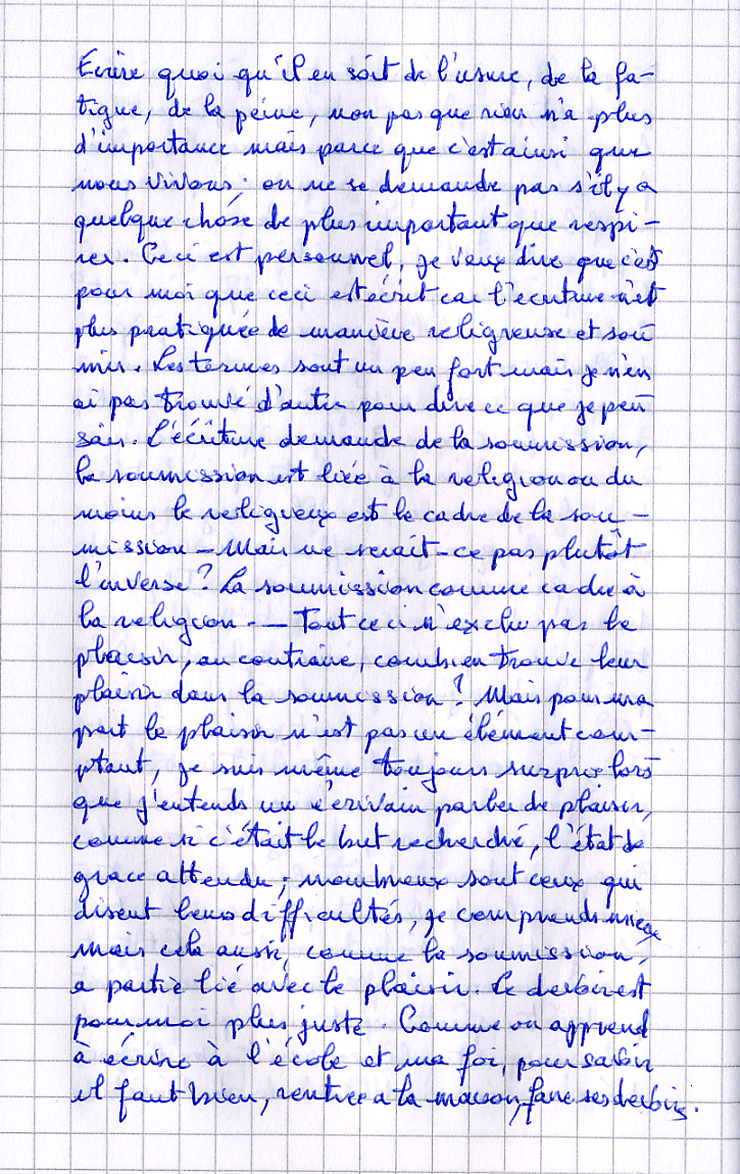 Écrire quoi qu'il en soit de l'usure, de la fa-
tigue, de la peine, non pas que rien n'a plus
d'importance mais parce que c'est ainsi que
nous vivons ; on ne se demande pas s'il y a
quelque chose de plus important que respi-
rer. Ceci est personnel, je veux dire que c'est
pour moi que ceci est écrit car l'écriture n'est
plus pratiquée de manière religieuse et sou
mise. Les termes sont un peu fort mais je n'en
ai pas trouvé d'autre pour dire ce que je pen
sais. L'écriture demande de la soumission,
la soumission est liée à la religion ou du
moins le religieux est le cadre de la sou-
mission - Mais ne serait-ce pas plutôt
l'inverse ? La soumission comme cadre à
la religion -- Tout ceci n'exclu pas le
plaisir, au contraire, combien trouve leur
plaisir dans la soumission ? Mais pour ma
part le plaisir n'est pas un élément com-
ptant, je suis même toujours surpris lors
que j'entends un écrivain parler de plaisir,
comme si c'était le but recherché, l'état de
grace attendu ; nombreux sont ceux qui
disent leurs difficultés, je comprends mieux
mais cela aussi, comme la soumission,
a partie lié avec le plaisir. Le devoir est
pour moi plus juste. Comme on apprend
à écrire à l'école et ma foi, pour savoir
il faut bien, rentrer a la maison, faire ses devoirs.